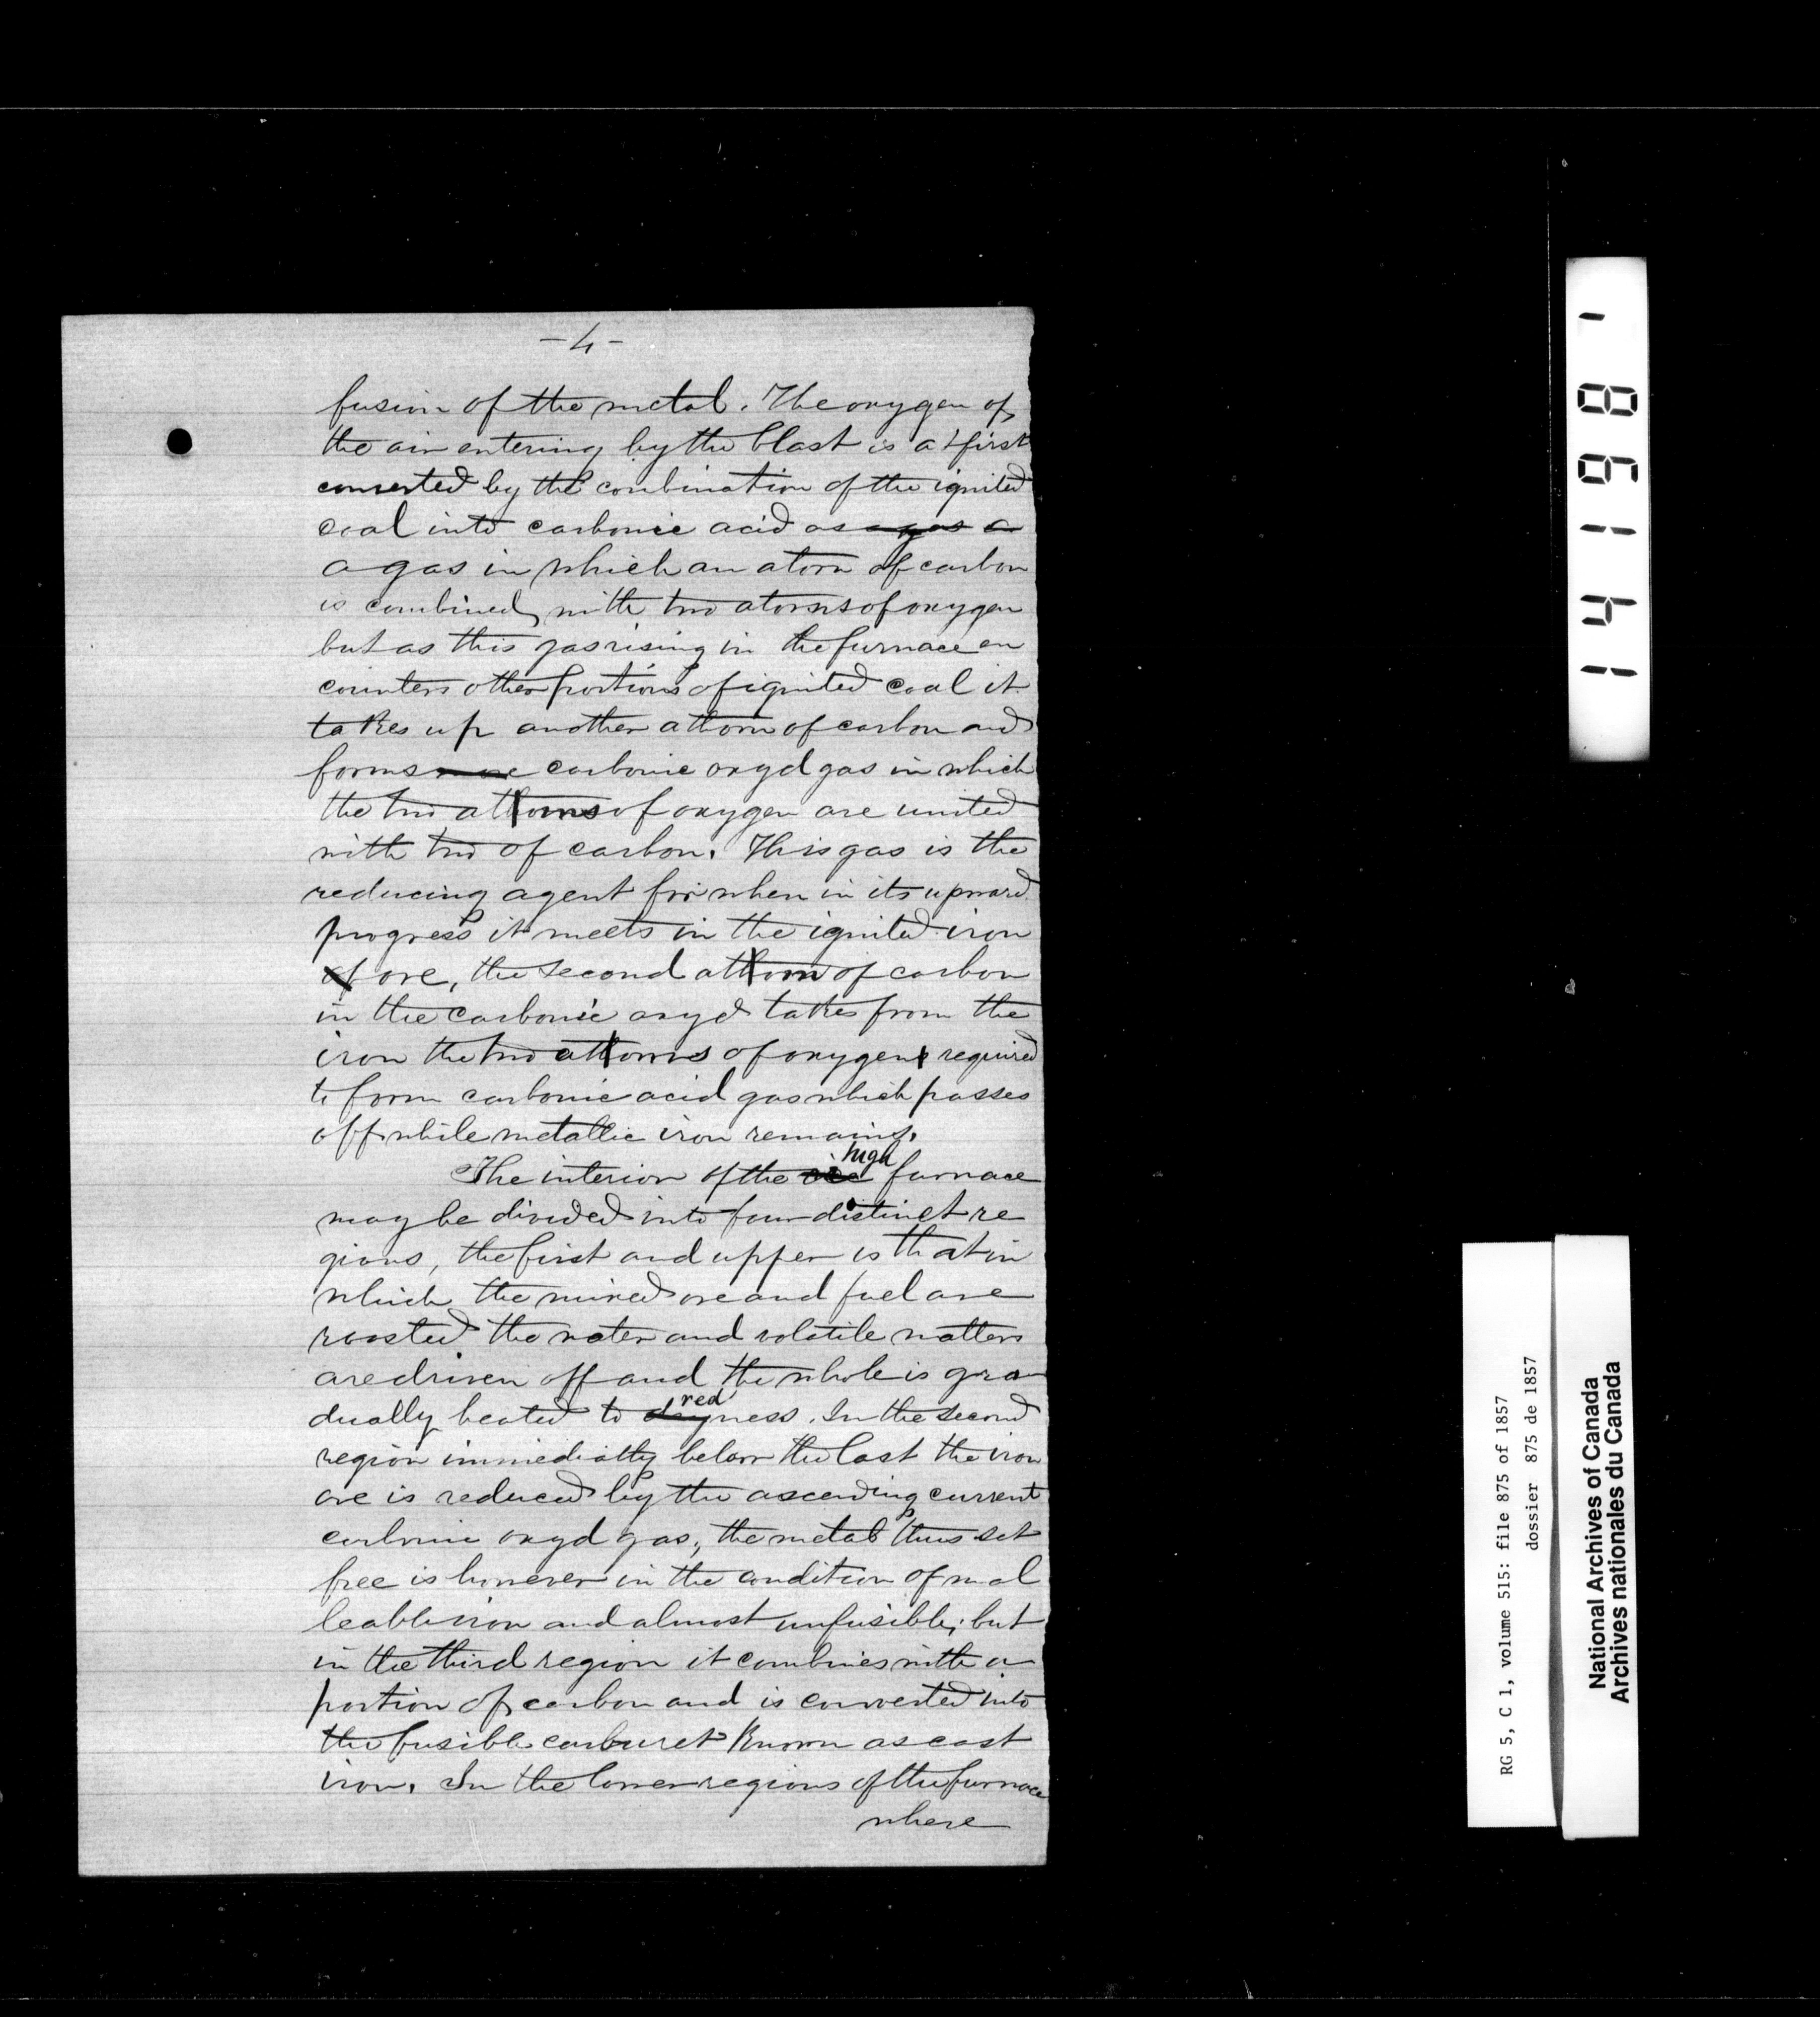 -4-
fusion of the metal. The oxygen of
the air entering by the blast is at first
converted by the conbination of the ignited
coal into carbonic acid as a gas a
a gas in which an atom of carbon
is combined with two atoms of oxygen
but as this gas rising in the furnace en
counters other portions of ignited coal it
takes up another athom of carbon and
forms carbonic oxyd gas in which
the two athoms of oxygen are united
with two of carbon. This gas is the
reducing agent for when in its upward
progress it meets in the ignited iron
of ore, the second athom of carbon
in the carbonic oxyd takes from the
iron the two athoms of oxygen required
to form carbonic acid gas which passes
off while metallic iron remains.
The interior of the high furnace
may be divided into four distinct re
gions, the first and upper is that in
which the mixed ore and fuel are
roasted the water and volatile matters
are driven off and the whole is gra
dually heated to redness. In the second
region immediatly below the last the iron
ore is reduced by the ascending current
carbonic oxyd gas; the metal thus set
free is however in the condition of mal
leable iron and almost unfusible; but
in the third region it combines with a
portion of carbon and is converted into
the fusible carburet known as cast
iron. In the lower regions of the furnace
where
141981
RG 5, C 1, volume 515: file 875 of 1857
dossier 875 de 1857
National Archives of Canada
Archives nationales du Canada